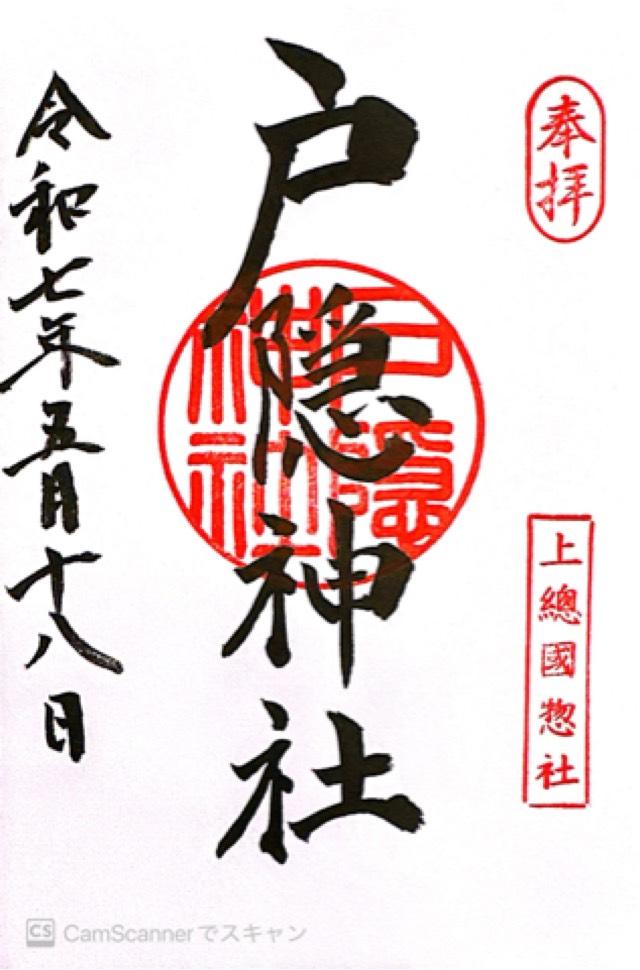 奉拝
上總國惣社
戸隠神社
戸隠神社
令和七年五月十八日
CS CamScannerでスキャン